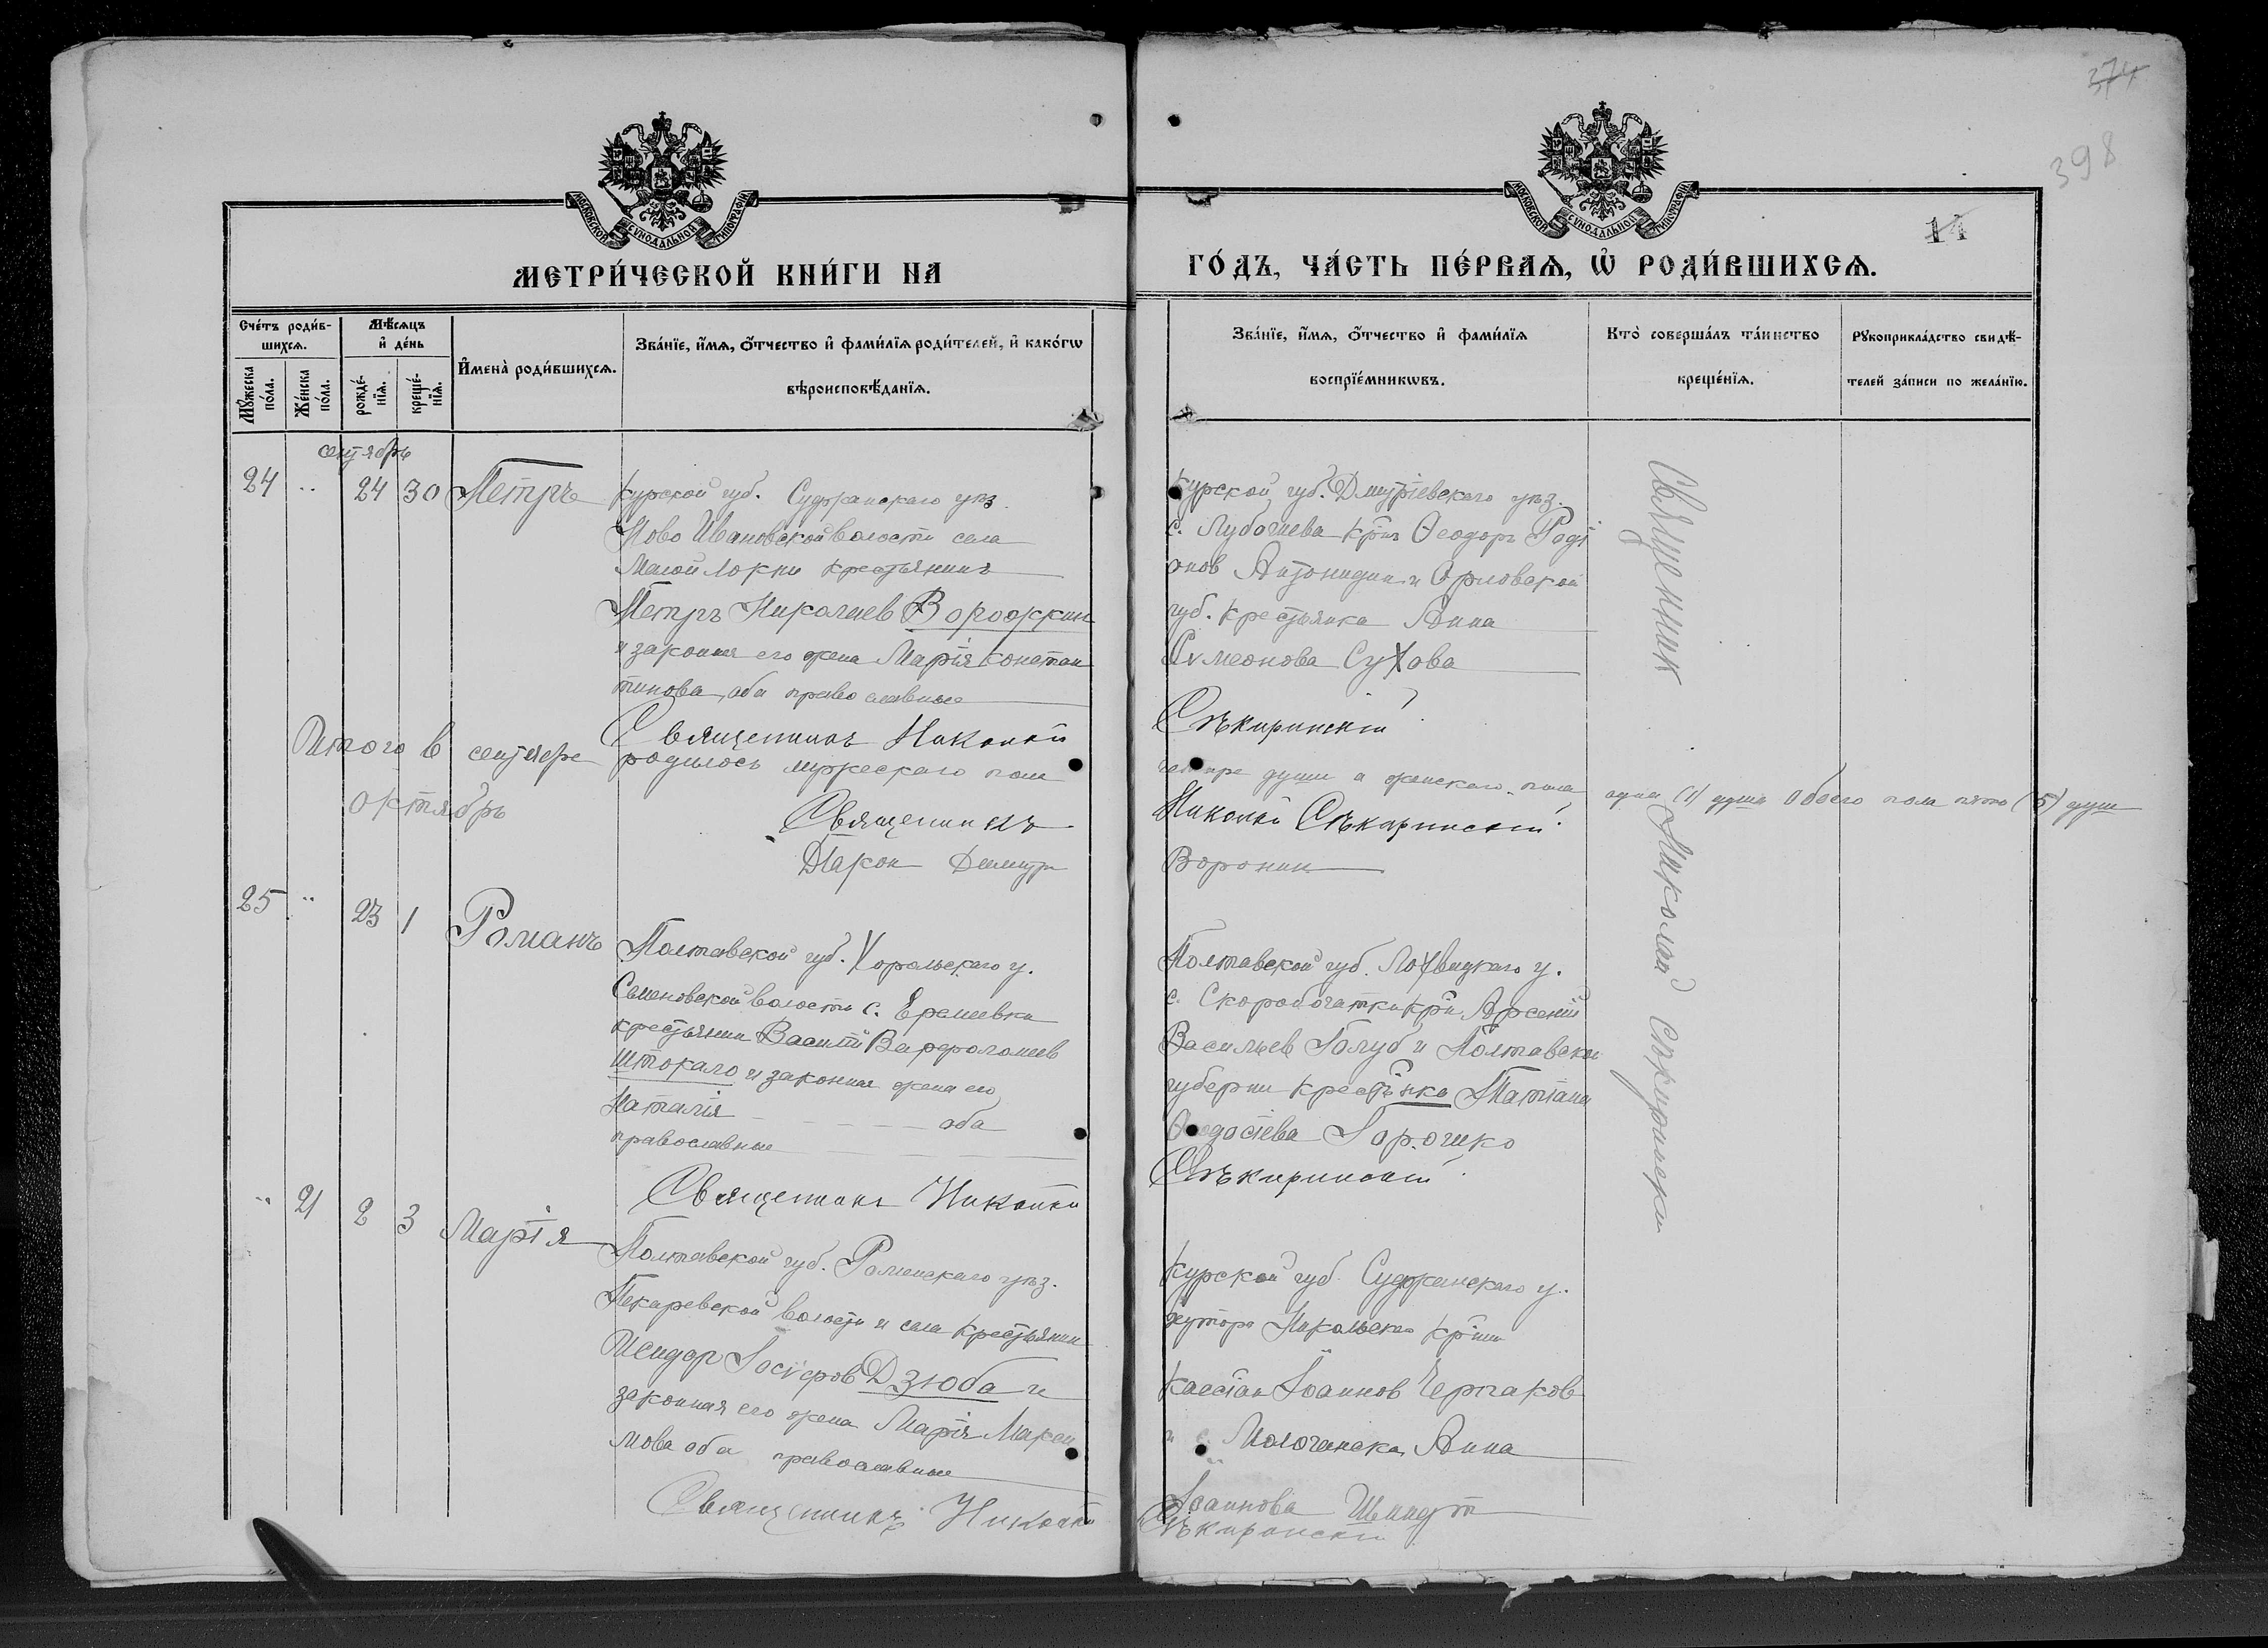 374
398
14
МОСКОВСКОЙ СѴНОДАЛЬНОЙ ТИПОГРАФІИ
МОСКОВСКОЙ СѴНОДАЛЬНОЙ ТИПОГРАФІИ
МЕТРИ́ЧЕСКОЙ КНИ́ГИ НА
ГО́ДЪ, ЧА́СТЬ ПЕ́РВАѦ, Ѡ҆ РОДИ́ВШИХСѦ.
Сче́тъ роди́в-
шихсѧ.
Мꙋ́жеска по́ла.
Же́нска по́ла.
Мѣ́сѧцъ
и҆ де́нь
рожде́-
нїѧ.
креще́-
нїѧ.
И҆мена̀ роди́вшихсѧ.
Зва́нїе, и҆́мѧ, ѻ҆́тчество и҆ фами́лїѧ роди́телей, и҆ како́гѡ
вѣроисповѣ́данїѧ.
Зва́нїе, и҆́мѧ, ѻ҆́тчество и҆ фами́лїѧ
воспрїе́мникѡвъ.
Кто̀ соверша́лъ та́инство
креще́нїѧ.
Рꙋкоприкла́дство свидѣ́-
телей за́писи по жела́нїю.
сентябрь
24 " 24 30 Петръ
Курской губ. Суджанскаго уѣз.
Ново Ивановской волости села
Малой Локни крестьянинъ
Петръ Николаев Ворожкин
и законная его жена Марія Констан
тинова, оба православные
Священникъ Николай
Курской губ. Дмитріевскаго уѣз.
с. Лубошева кр-нъ Ѳеодоръ Родi
онов и Орловской
губ. крестьянка Анна
Сѵмеонова Сухова
Сѣкиринскій
Итого в сентябре родилось мужескаго пола
четыре души а женскаго пола одна (1) душа Обоего пола пять (5) душ
Священникъ
Николай Сѣкиринскій
Діакон Димитр
Воронин
октябрь
25 " 23 1 Романъ
Полтавской губ. Хорольскаго у.
Семеновской волости с. Еремеевки
крестьянин Василій Варфоломеев
Штокало и законная жена его
Наталія оба
православные
Священникъ Николай
Полтавской губ. Лохвицкаго у.
с. Скоробогатки кр-нъ Арсеній
Васильев Голуб и Полтавской
губернии крестьянка Татіана
Ѳеодосіева Горошко
Сѣкиринскій
" 21 2 3 Марія
Полтавской губ. Роменскаго уѣз.
Пекаревской волости и села крестьянин
Исидор Іосифов Дзюба и
законная его жена Марія Макси
мова оба православные
Священникъ Николай
Курской губ. Суджанскаго у.
хутора Никольска кр-нин
Кассіан Іоаннов Черпаков
и с. Молочанска Анна
Іоаннова Шмидт
Сѣкиринскій
Священник
Николай Сѣкирински